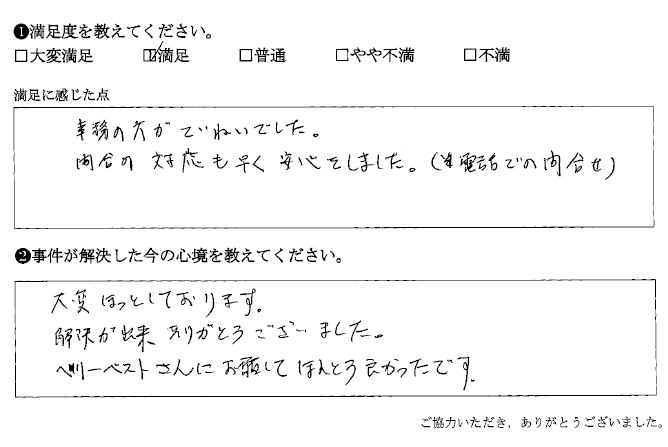 ❶満足度を教えてください。
□大変満足 ☑満足 □普通 □やや不満 □不満
満足に感じた点
事務の方がていねいでした。
問合の対応も早く安心をしました。(電話での問合せ)
❷事件が解決した今の心境を教えてください。
大変ほっとしております。
解決が出来ありがとうございました。
ベリーベストさんにお願してほんとう良かったです。
ご協力いただき，ありがとうございました。